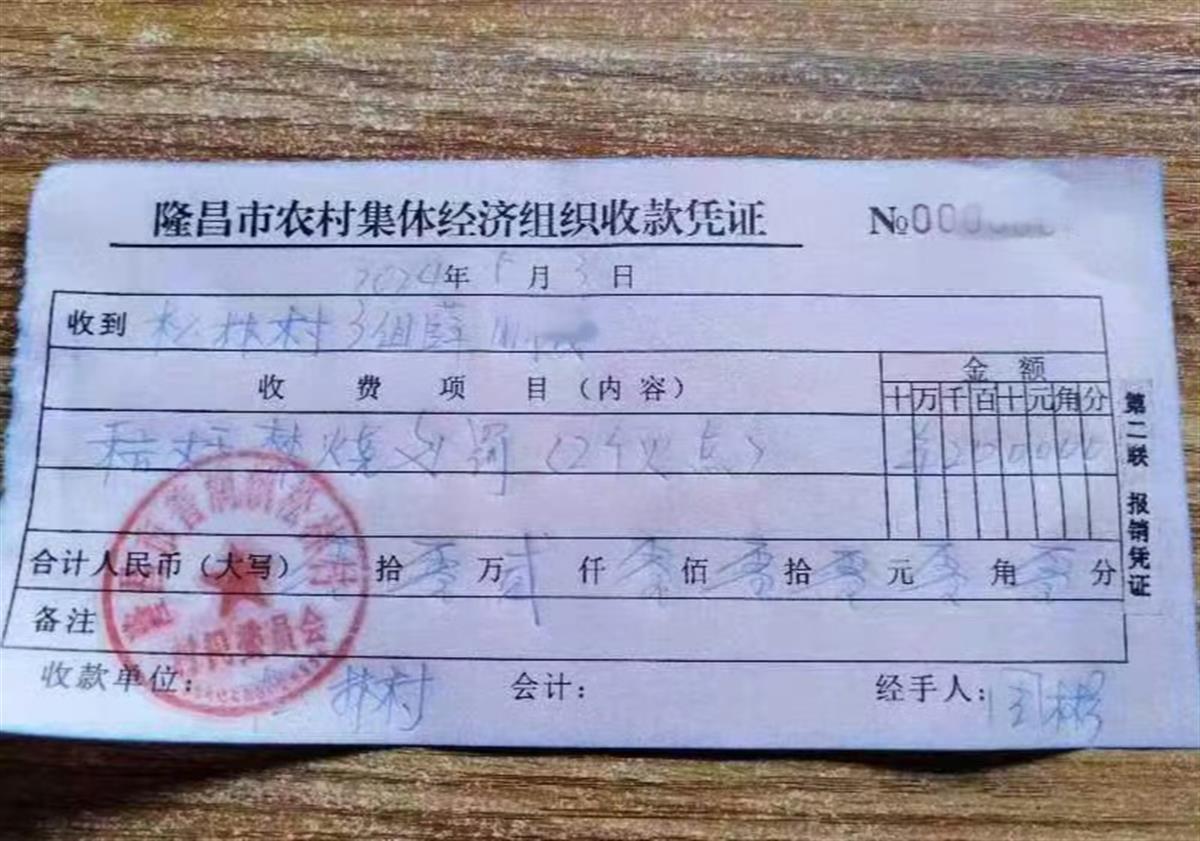 隆昌市农村集体经济组织收款凭证 №000
2024年5月3日
收到 松林村3组薛
收费项目（内容） 金额
十万千百十元角分
秸秆焚烧处罚（2个火点） ¥200000
合计人民币（大写） 零拾零万贰仟零佰零拾零元零角零分
备注
收款单位： 松林村 会计： 经手人： 彬
第二联 报销凭证
村民委员会